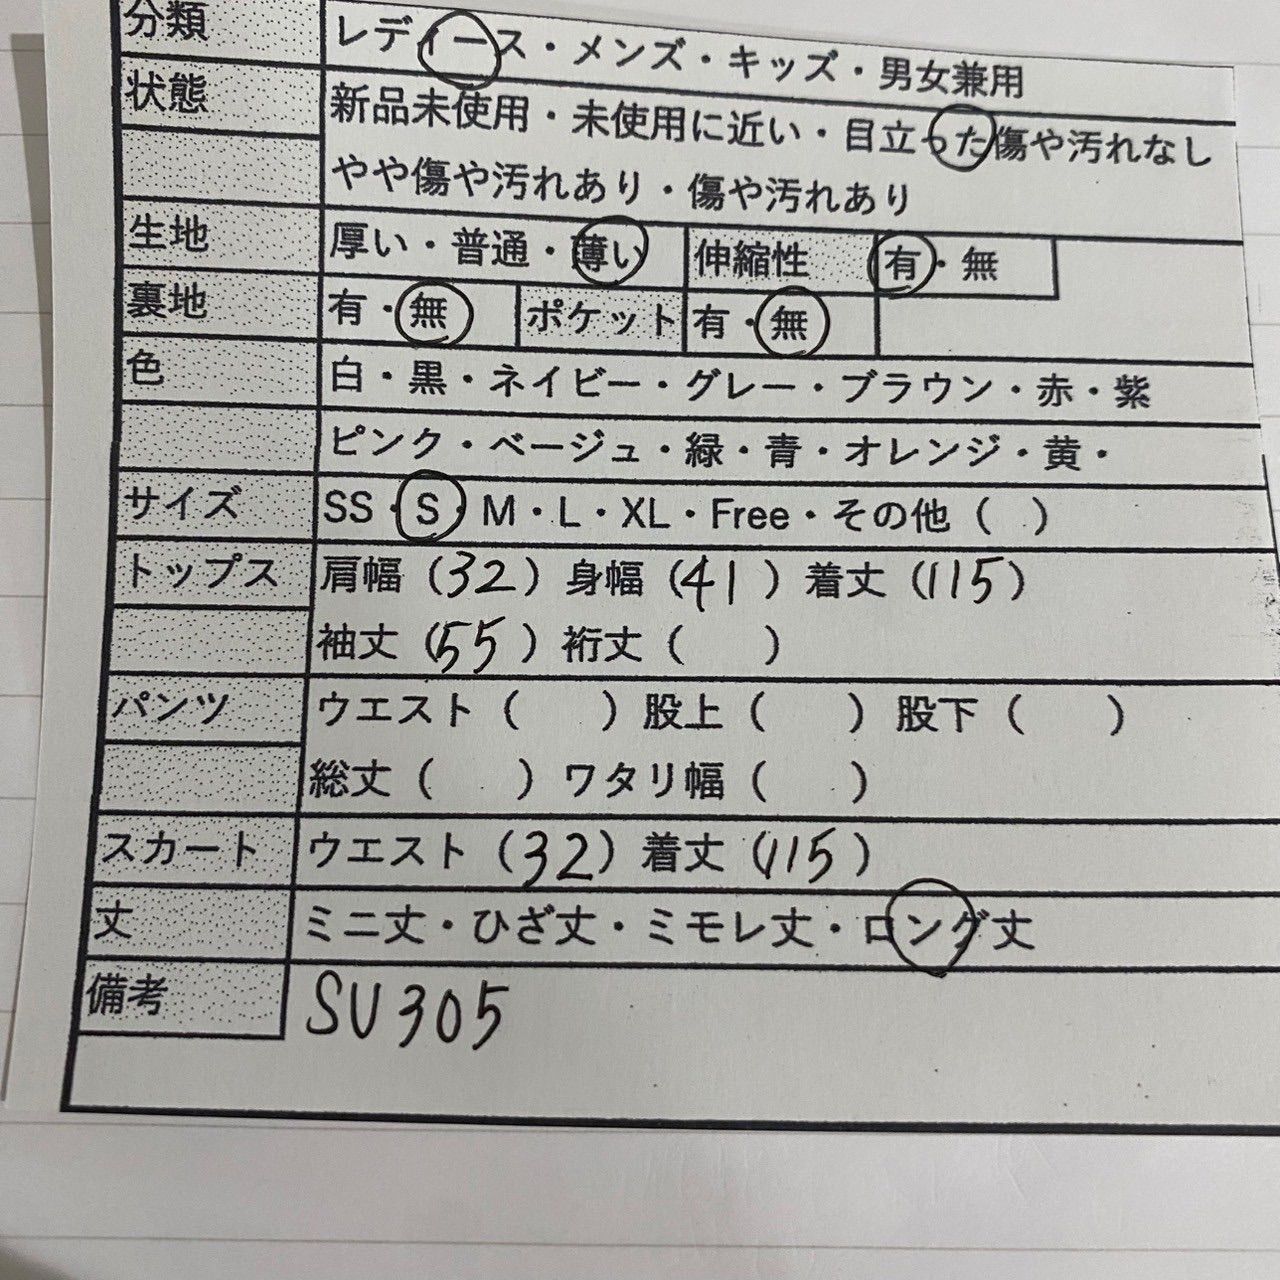 分類 レディース・メンズ・キッズ・男女兼用
状態 新品未使用・未使用に近い・目立った傷や汚れなし
やや傷や汚れあり・傷や汚れあり
生地 厚い・普通・薄い 伸縮性 有・無
裏地 有・無 ポケット 有・無
色 白・黒・ネイビー・グレー・ブラウン・赤・紫
ピンク・ベージュ・緑・青・オレンジ・黄・
サイズ SS・S・M・L・XL・Free・その他（ ）
トップス 肩幅（32）身幅（41）着丈（115）
袖丈（55）裄丈（ ）
パンツ ウエスト（ ）股上（ ）股下（ ）
総丈（ ）ワタリ幅（ ）
スカート ウエスト（32）着丈（115）
丈 ミニ丈・ひざ丈・ミモレ丈・ロング丈
備考 SU305